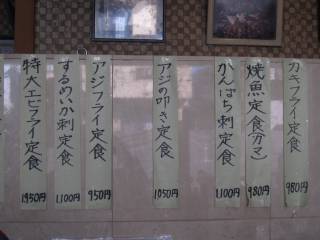 カキフライ定食 980円
焼魚定食(サンマ) 980円
かんぱち刺定食 1100円
アジの叩き定食 1050円
アジフライ定食 950円
するめいか刺定食 1100円
特大エビフライ定食 1950円